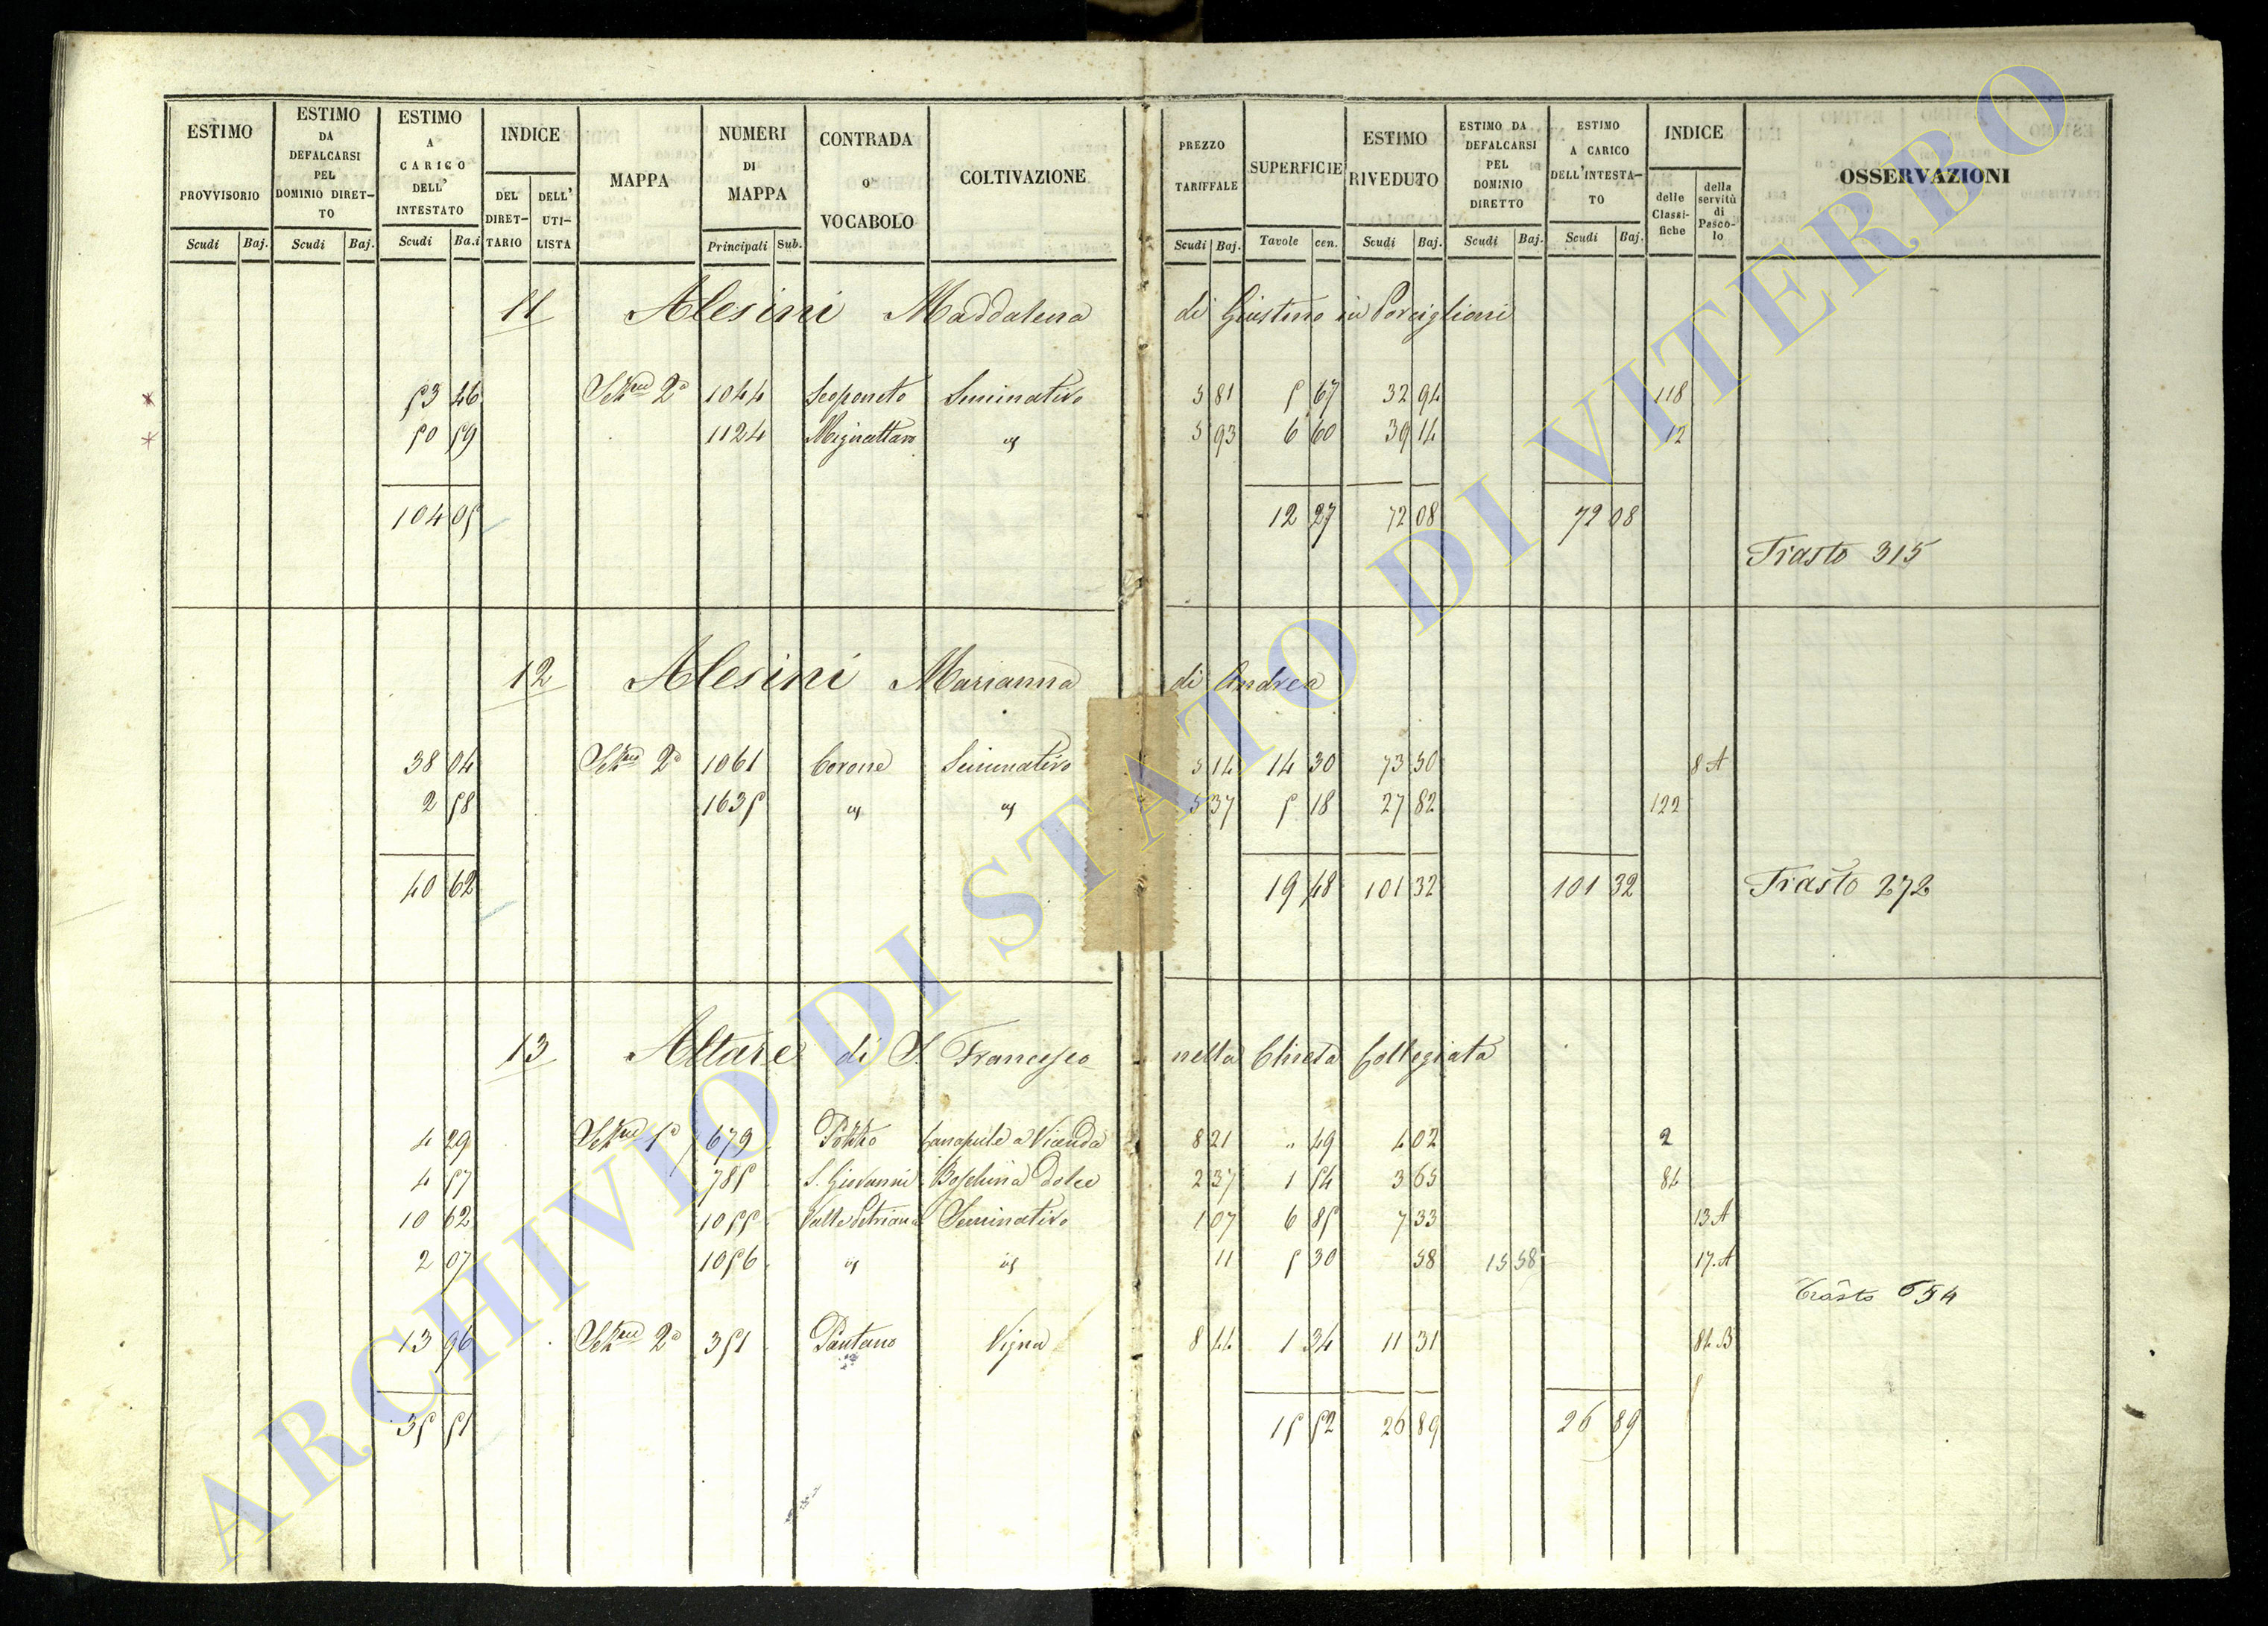 ESTIMO PROVVISORIO Scudi Baj.
ESTIMO DA DEFALCARSI PEL DOMINIO DIRET-TO Scudi Baj.
ESTIMO A CARICO DELL' INTESTATO Scudi Ba.i
INDICE DEL DIRET-TARIO DELL' UTI-LISTA
MAPPA
NUMERI DI MAPPA Principali Sub.
CONTRADA O VOCABOLO
COLTIVAZIONE
PREZZO TARIFFALE Scudi Baj.
SUPERFICIE Tavole cen.
ESTIMO RIVEDUTO Scudi Baj.
ESTIMO DA DEFALCARSI PEL DOMINIO DIRETTO Scudi Baj.
ESTIMO A CARICO DELL'INTESTA-TO Scudi Baj.
INDICE delle Classi-fiche della servitù di Pasco-lo
OSSERVAZIONI
11 Alesini Maddalena di Giustino in Porcigliani
53 46 Sez.ne 2a 1044 Scoponeto Seminativo 5 81 5 67 32 94 118
50 59 1124 Mignattaro 5 93 6 60 39 14 12
104 05 12 27 72 08 72 08
Trasto 315
12 Alesini Marianna di Andrea
38 04 Sez.ne 2a 1061 Corone Seminativo 5 14 14 30 73 50 8 A
2 58 1635 5 37 5 18 27 82 122
40 62 19 48 101 32 101 32 Trasto 272
13 Altare di S. Francesco nella Chiesa Collegiata
4 29 Sez.ne 1a 679 Pozzo Canapule a Vicenda 8 21 " 49 4 02 2
4 57 785 S. Giovanni Boschina Dolce 2 37 1 54 3 65 84
10 62 1055 Valle Petriana Seminativo 1 07 6 85 7 33 13.A
2 07 1056 11 5 30 58 15 58 17.A
Trasto 654
13 96 Sez.ne 2a 351 Pantano Vigna 8 44 1 34 11 31 84.B
35 51 15 52 26 89 26 89
ARCHIVIO DI STATO DI VITERBO